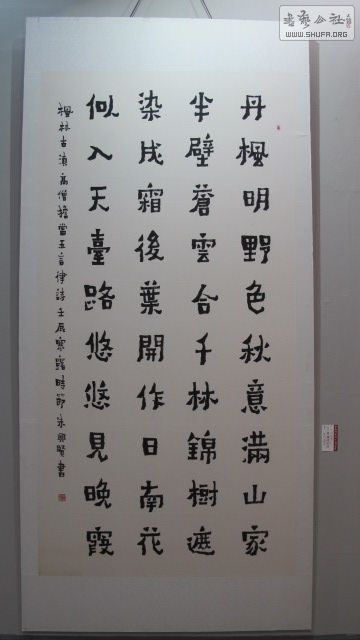 丹楓明野色秋意滿山家
半壁蒼雲合千林錦樹遮
染成霜後葉開作日南花
似入天臺路悠悠見晚霞
楓林古滇高僧擔當五言律詩壬辰寒露時節朱興賢書
书艺公社
WWW.SHUFA.ORG